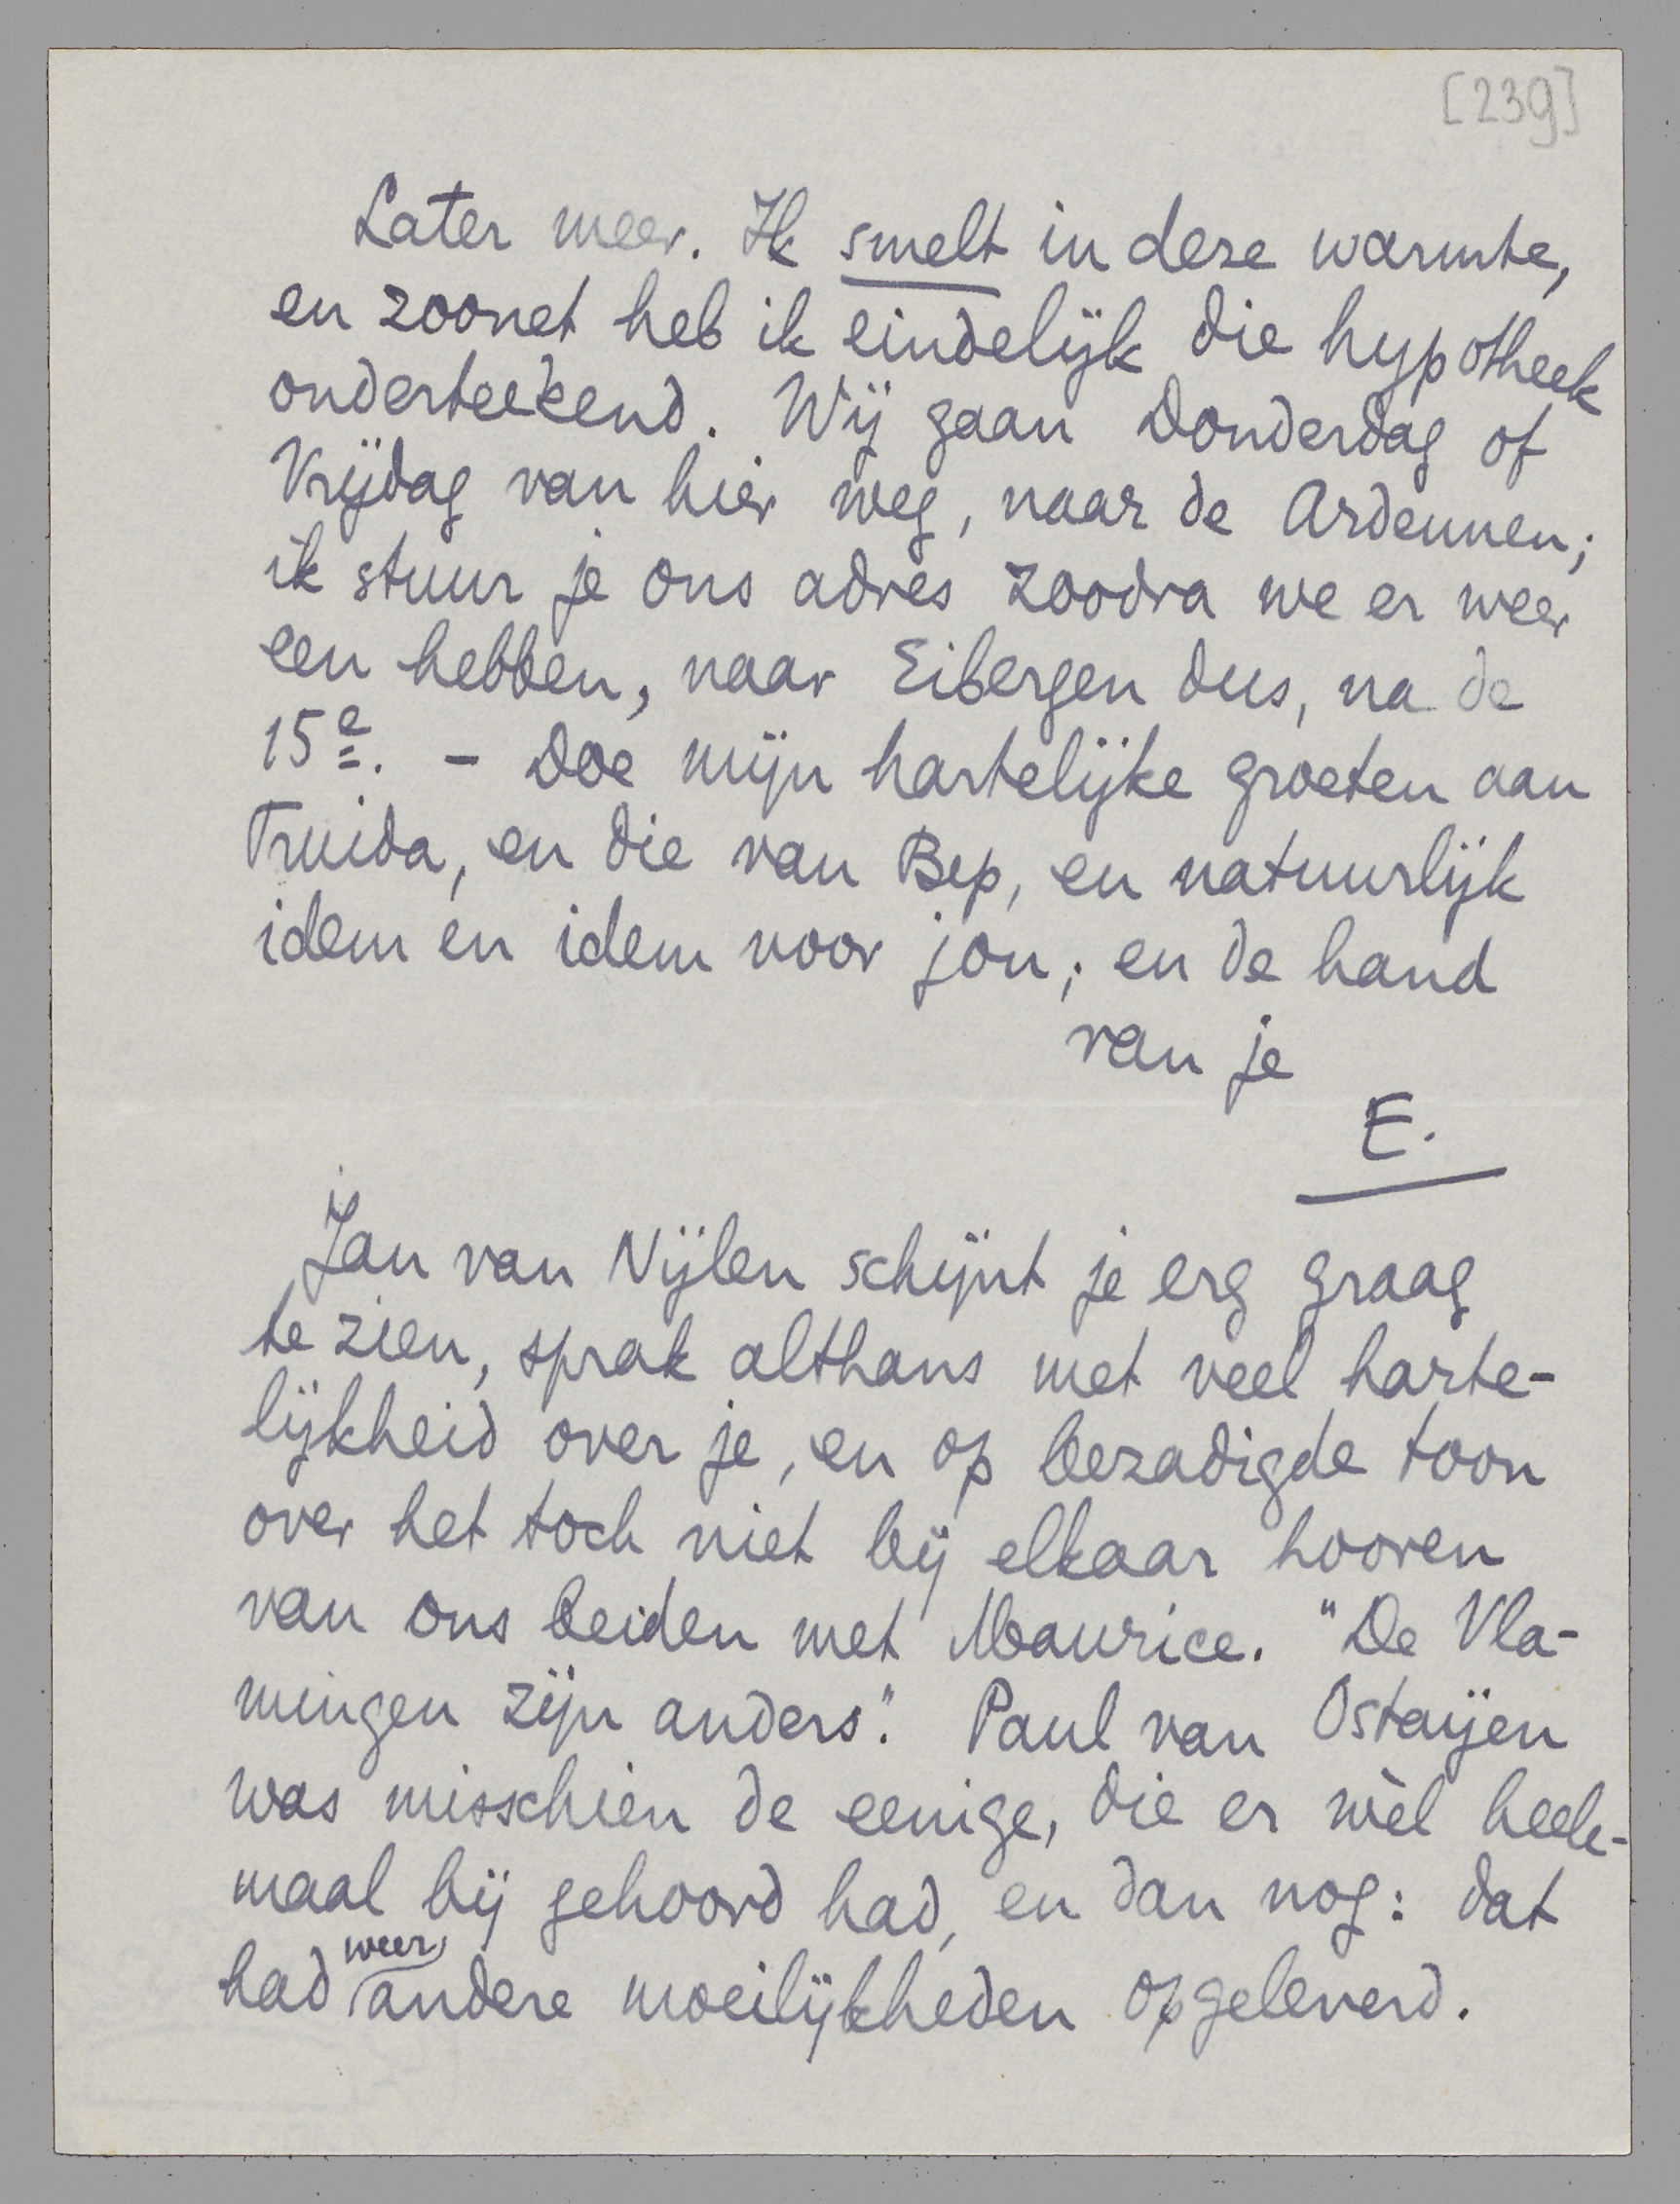 [239]
Later meer. Ik smelt in deze warmte,
en zoonet heb ik eindelijk die hypotheek
onderteekend. Wij gaan Donderdag of
Vrijdag van hier weg, naar de Ardennen;
ik stuur je ons adres zoodra we er weer
een hebben, naar Eibergen dus, na de
15e. - Doe mijn hartelijke groeten aan
Truida, en die van Bep, en natuurlijk
idem en idem voor jou; en de hand
van je
E.
Jan van Nijlen schijnt je erg graag
te zien, sprak althans met veel harte-
lijkheid over je, en op bezadigde toon
over het toch niet bij elkaar hooren
van ons beiden met Maurice. "De Vla-
mingen zijn anders". Paul van Ostaijen
was misschien de eenige, die er wèl heele-
maal bij gehoord had, en dan nog: dat
had weer andere moeilijkheden opgeleverd.